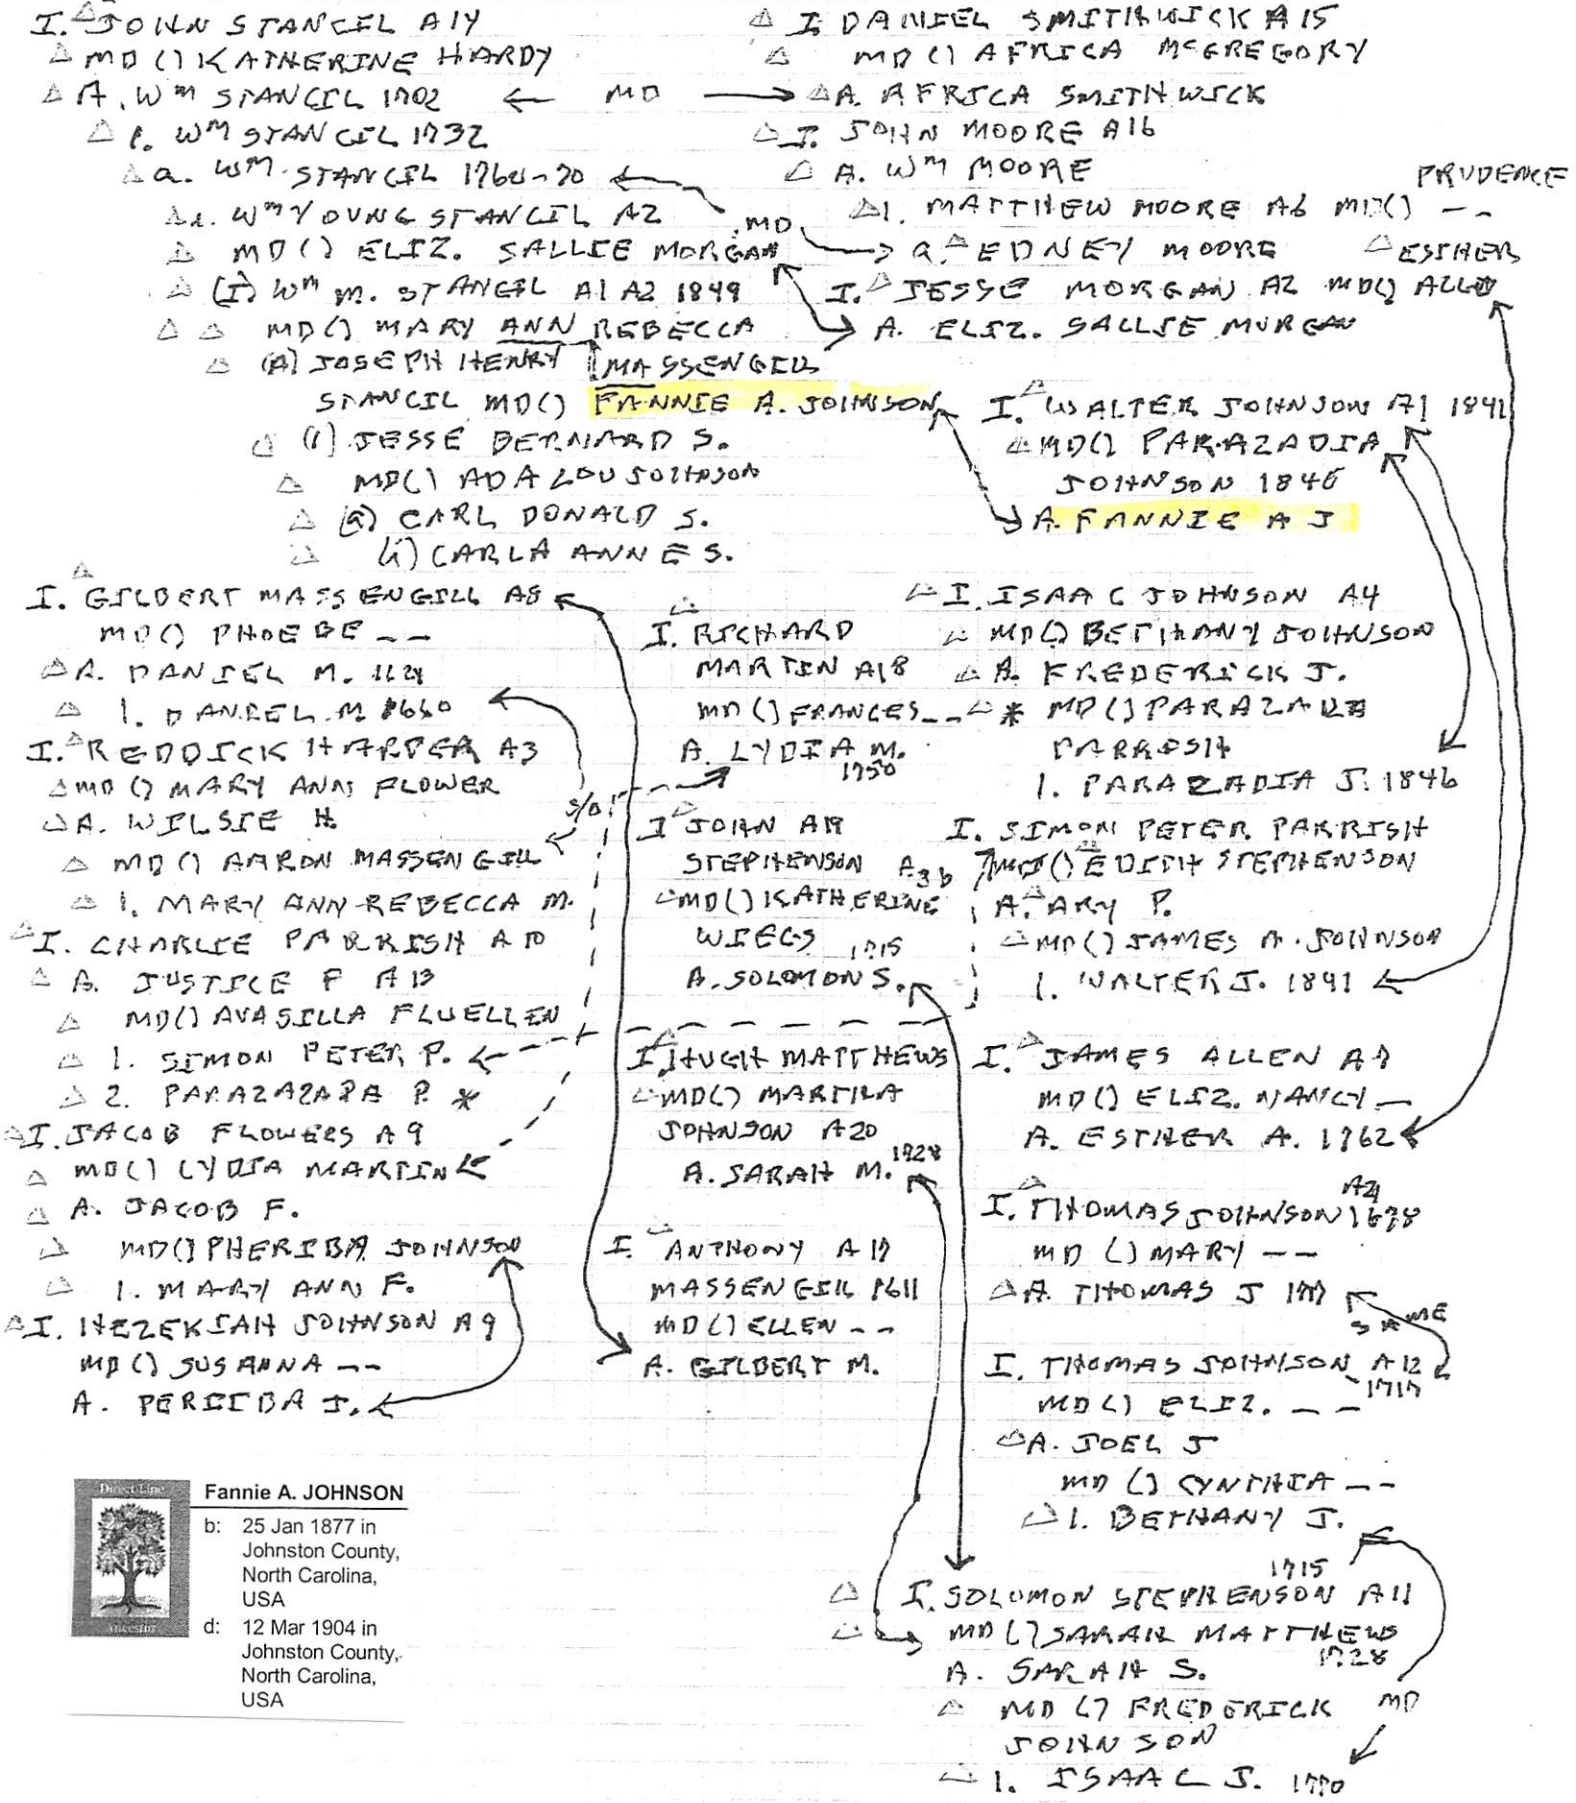 I. JOHN STANCIL A14
MD () KATHERINE HARDY
A. Wᵐ STANCIL 1702 ← MD →
1. Wᵐ STANCIL 1732
a. Wᵐ STANCIL 1760-70
i. Wᵐ YOUNG STANCIL A2
MD () ELIZ. SALLIE MORGAN
(I) Wᵐ M. STANCIL A1 A2 1849
MD () MARY ANN REBECCA
MASSENGILL
(A) JOSEPH HENRY
STANCIL MD () FANNIE A. JOHNSON
(1) JESSE BERNARD S.
MD () ADA LOU JOHNSON
(a) CARL DONALD S.
(i) CARLA ANNE S.
I. DANIEL SMITHWICK A15
MD () AFRICA MCGREGORY
A. AFRICA SMITHWICK
I. JOHN MOORE A16
A. Wᵐ MOORE
PRUDENCE
1. MATTHEW MOORE A6 MD () --
MD
a. EDNEY MOORE
ESTHER
I. JESSE MORGAN A2 MD () ALLEN
A. ELIZ. SALLIE MORGAN
I. WALTER JOHNSON A1 1841
MD () PARAZADIA
JOHNSON 1846
A. FANNIE A J
I. GILBERT MASSENGILL A8
MD () PHOEBE --
A. DANIEL M.
1. DANIEL M 1660
I. REDDICK HARPER A3
MD () MARY ANN FLOWER
A. WILSIE H.
MD () AARON MASSENGILL
1. MARY ANN REBECCA M.
S/O
I. CHARLIE PARRISH A10
A. JUSTICE P A13
MD () AVASILLA FLUELLEN
1. SIMON PETER P.
2. PARAZAZADA P. *
I. JACOB FLOWERS A9
MD () LYDIA MARTIN
A. JACOB F.
MD () PHERIBA JOHNSON
1. MARY ANN F.
I. HEZEKIAH JOHNSON A9
MD () SUSANNA --
A. PERIIBA J.
I. RICHARD
MARTIN A18
MD () FRANCES --
A. LYDIA M.
1750
I JOHN A19
STEPHENSON
MD () KATHERINE
WIEGS
1715
A. SOLOMON S.
I. HUGH MATTHEWS
MD () MARTHA
JOHNSON A20
1728
A. SARAH M.
I. ANTHONY A17
MASSENGILL 1611
MD () ELLEN --
A. GILBERT M.
I. ISAAC JOHNSON A4
MD () BETHANY JOHNSON
A. FREDERICK J.
* MD () PARAZADA
PARRISH
1. PARAZADIA J. 1846
I. SIMON PETER PARRISH
A3b
MD () EDITH STEPHENSON
A. ARY P.
MD () JAMES A. JOHNSON
1. WALTER J. 1841
I. JAMES ALLEN A7
MD () ELIZ. NANCY --
A. ESTHER A. 1762
A21
I. THOMAS JOHNSON 1678
MD () MARY --
A. THOMAS J 1717
SAME
I. THOMAS JOHNSON A12
1717
MD () ELIZ. --
A. JOEL J
MD () CYNTHIA --
1. BETHANY J.
1715
I. SOLOMON STEPHENSON A11
MD () SARAH MATTHEWS
1728
A. SARAH S.
MD () FREDERICK MD
JOHNSON
1. ISAAC J. 1770
Direct Line
Ancestor
Fannie A. JOHNSON
b: 25 Jan 1877 in
Johnston County,
North Carolina,
USA
d: 12 Mar 1904 in
Johnston County,
North Carolina,
USA